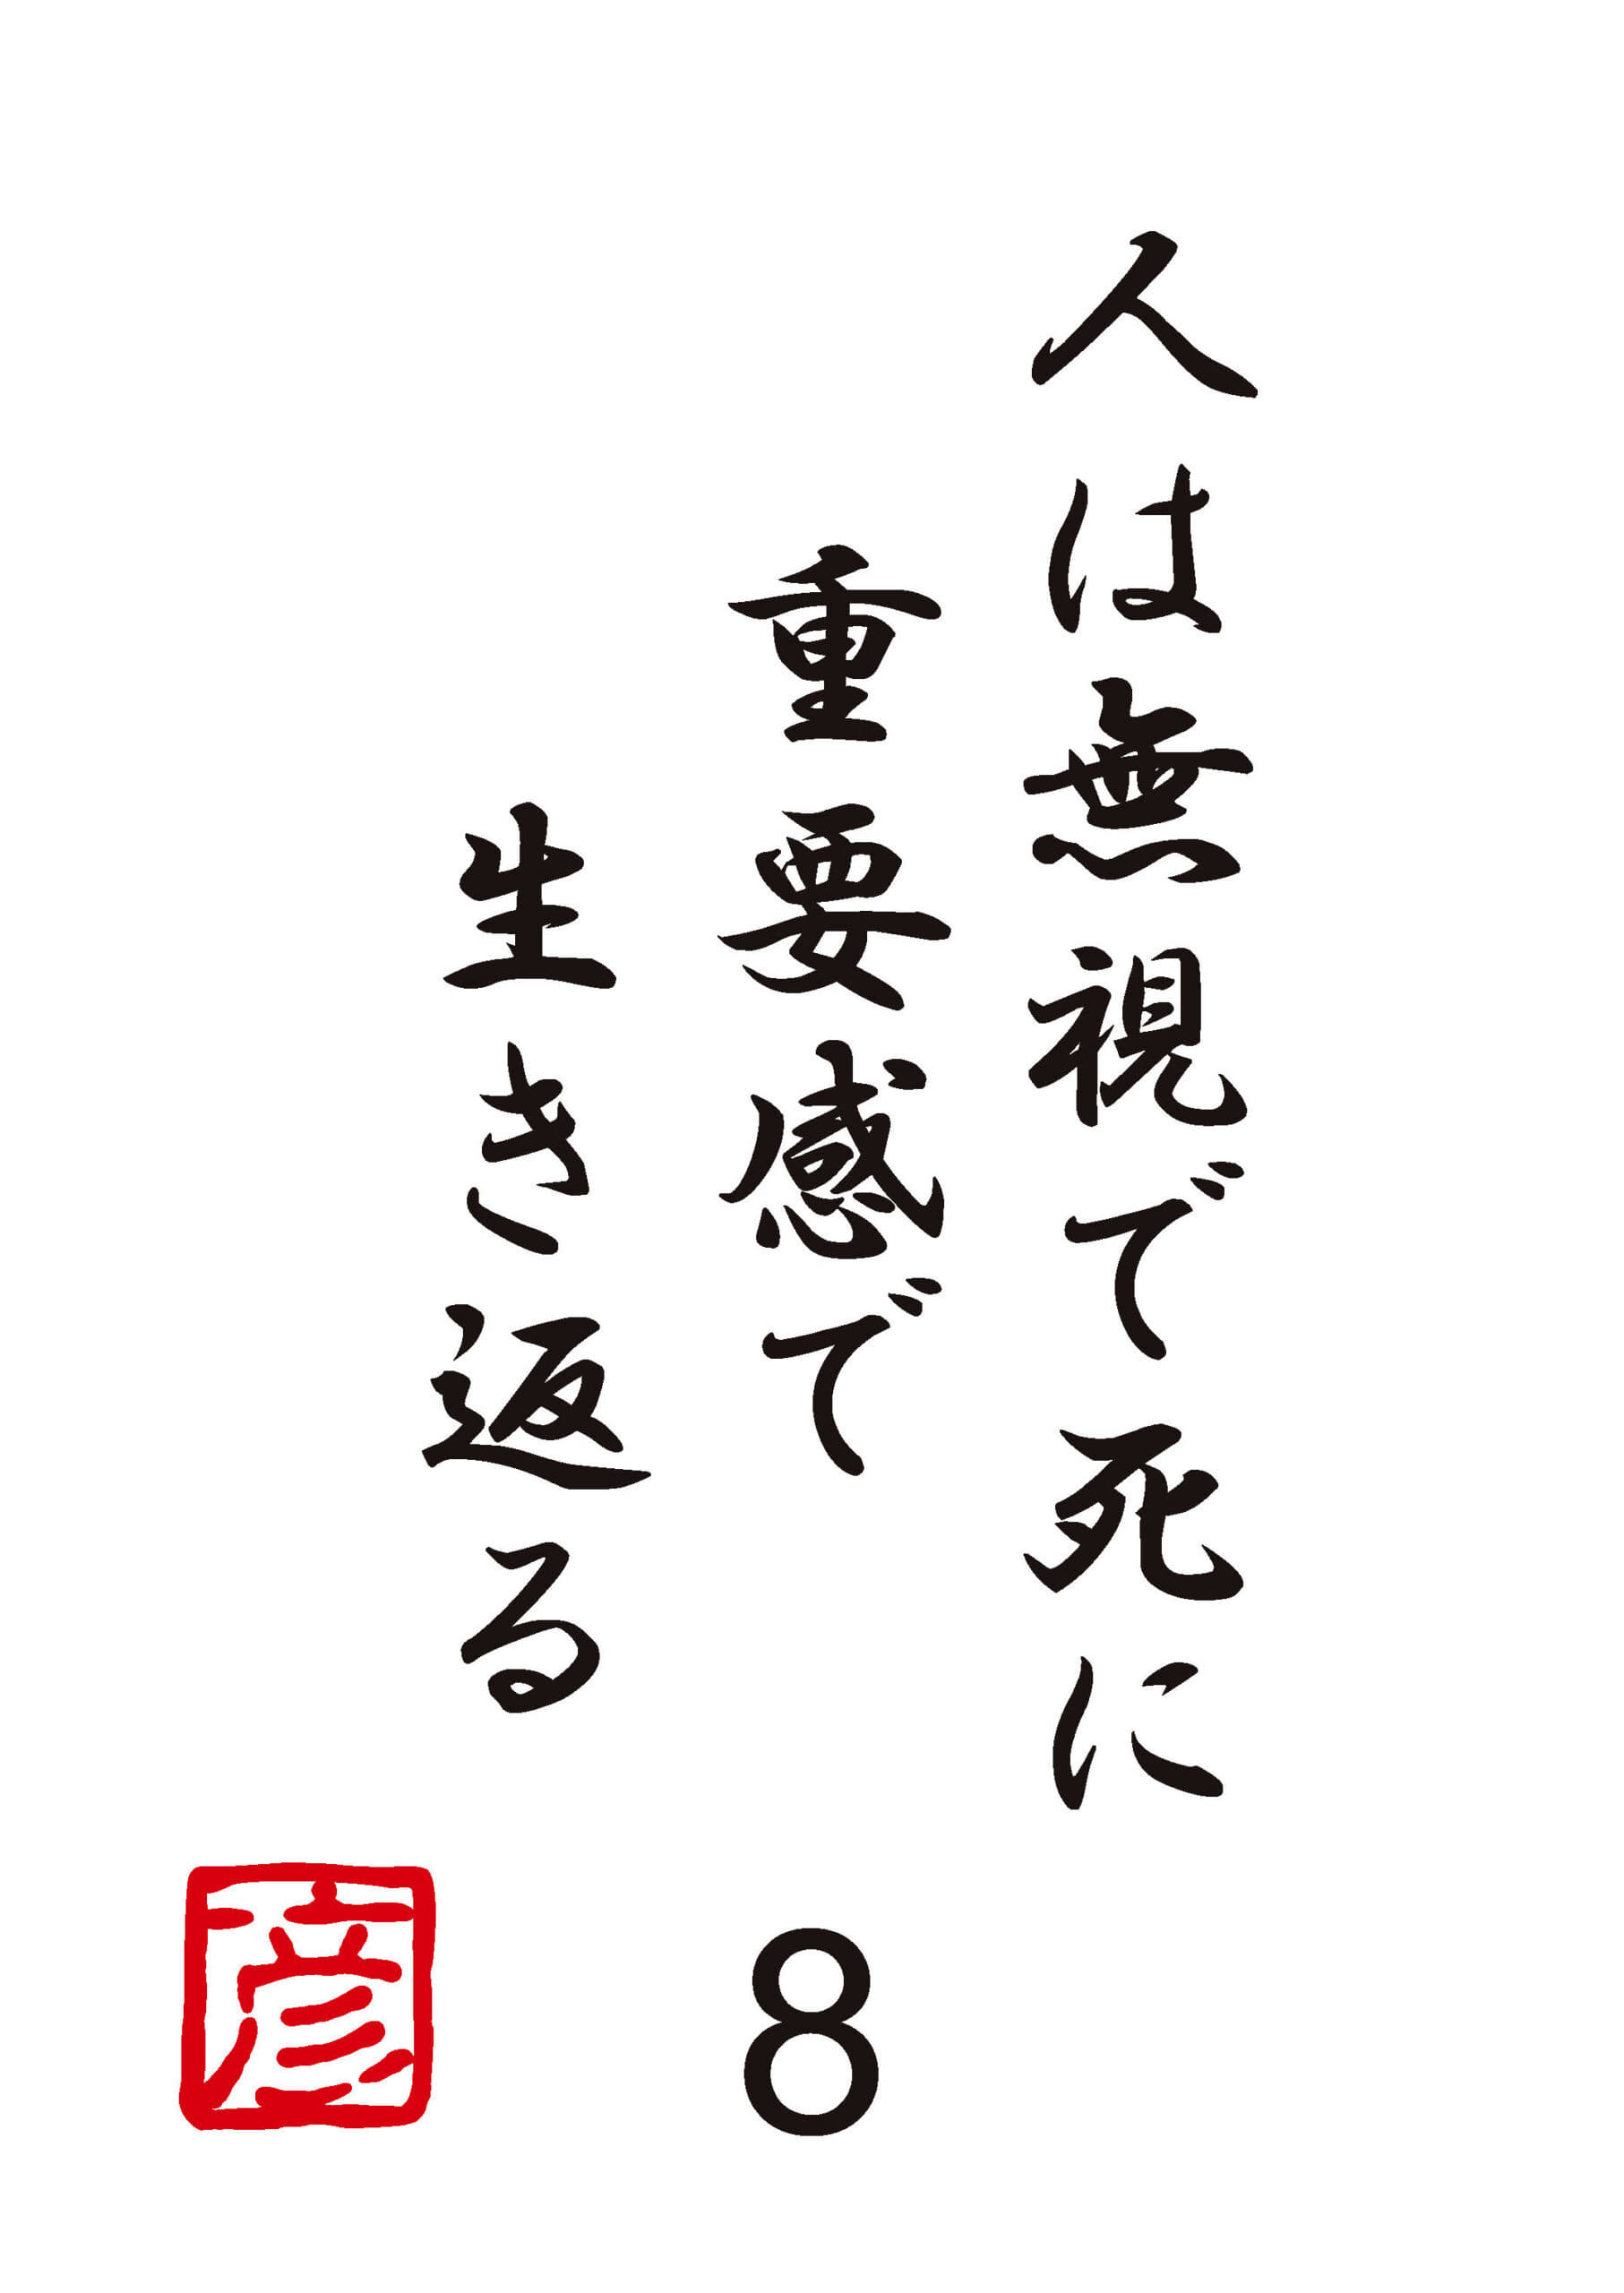 人は無視で死に
重要感で
生き返る
8
彦